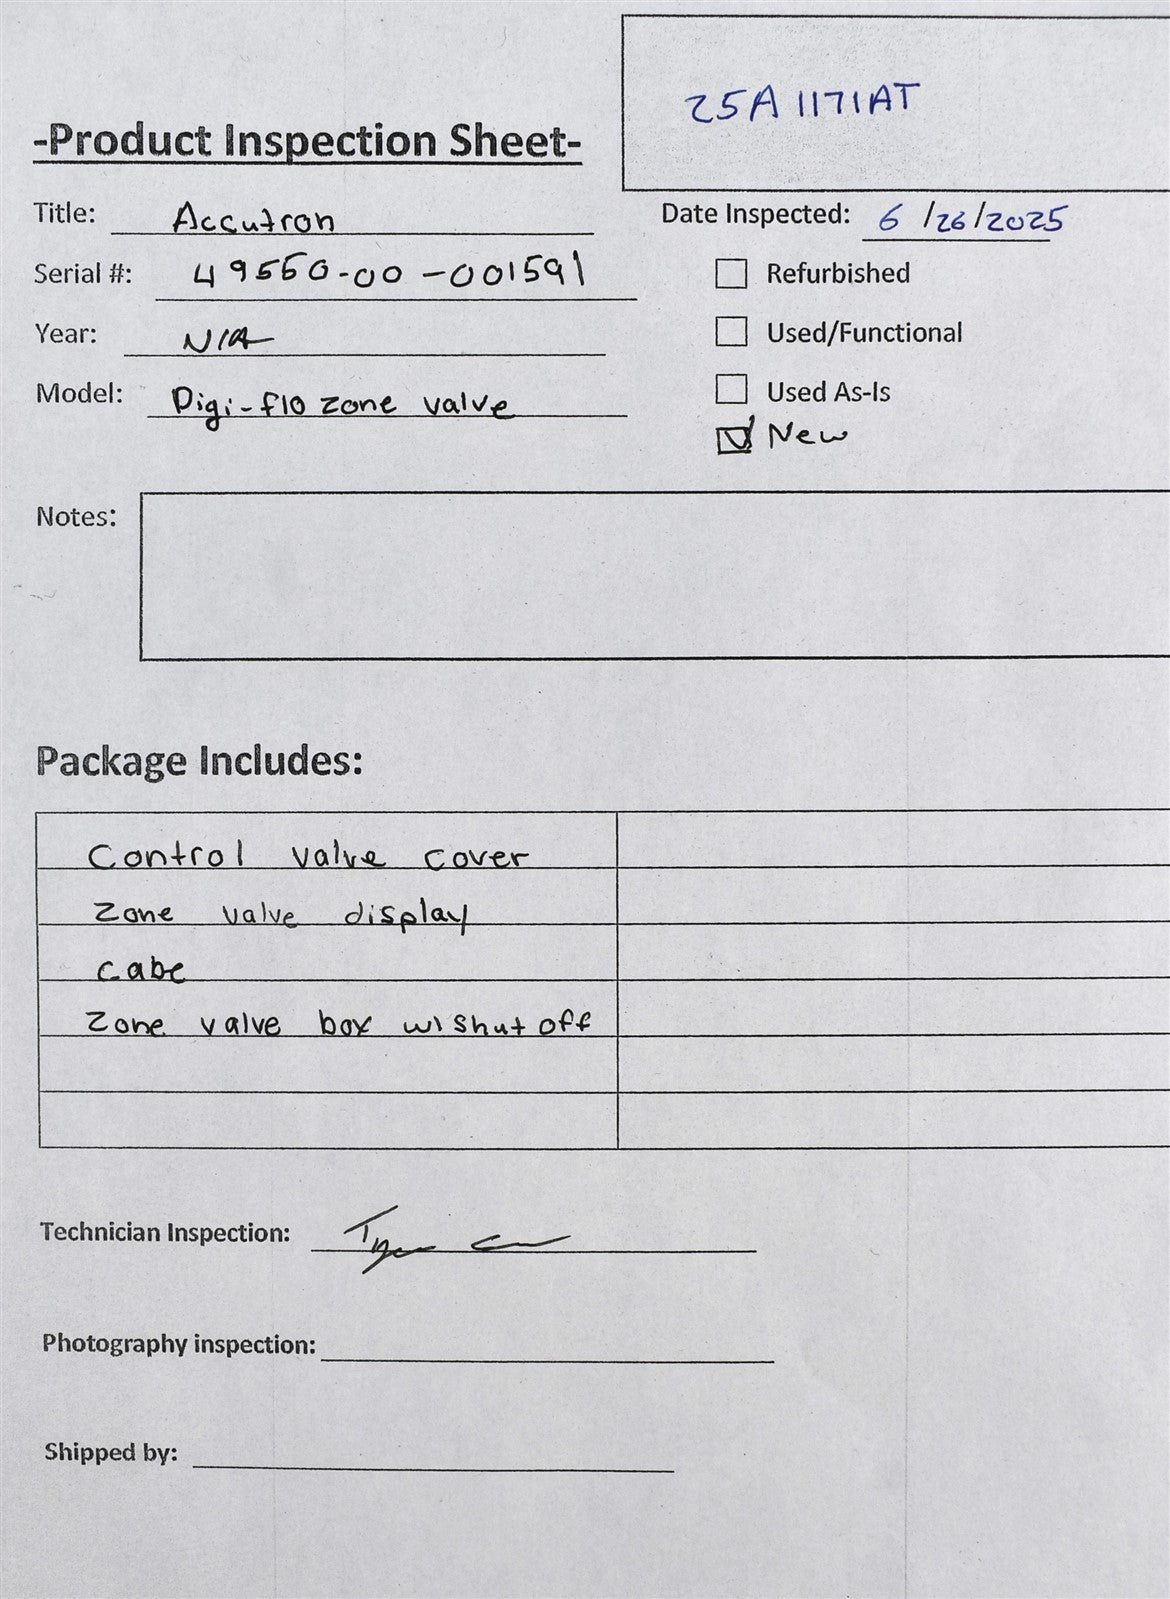 25A 1171AT
-Product Inspection Sheet-
Title: Accutron
Date Inspected: 6/26/2025
Serial #: 49550-00-001591
Refurbished
Year: N/A
Used/Functional
Model: Digi-flo zone valve
Used As-Is
New
Notes:
Package Includes:
Control valve cover
Zone valve display
cabe
Zone valve box w/ shut off
Technician Inspection:
Photography inspection:
Shipped by: